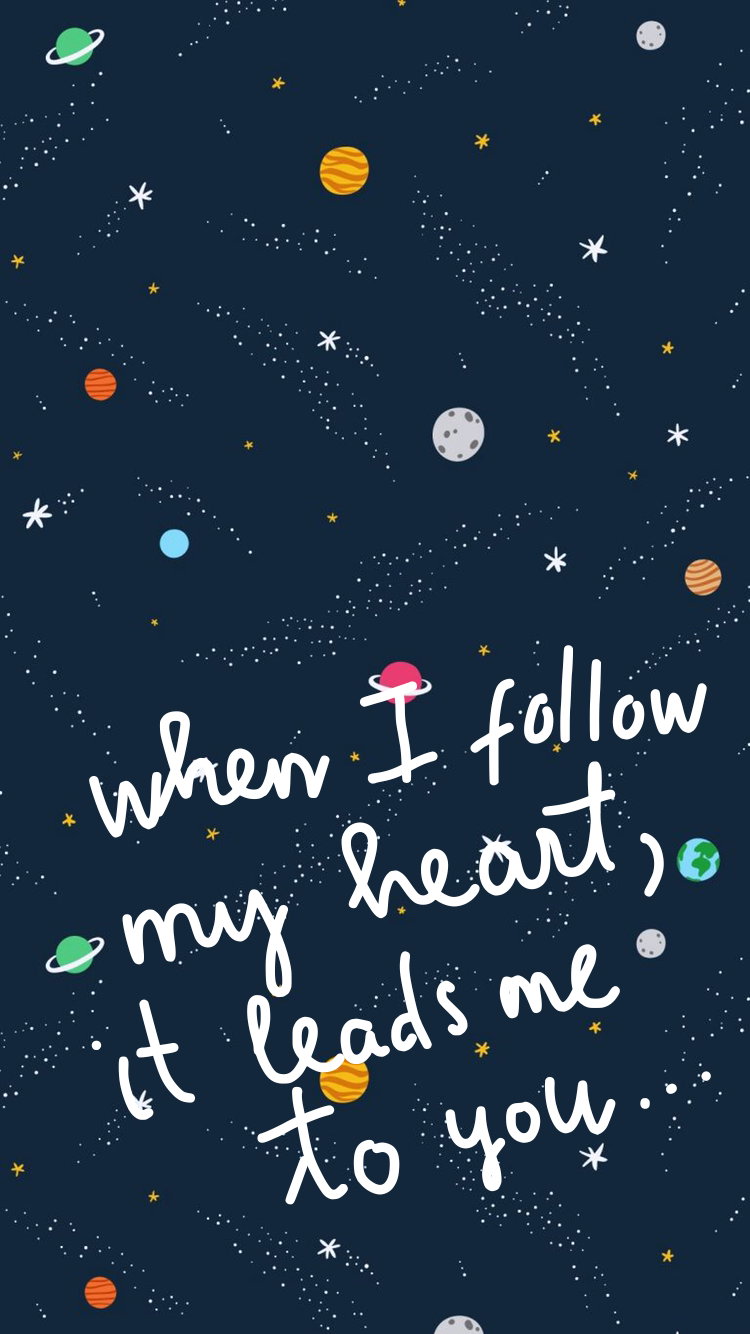 when I follow
my heart,
it leads me
to you...